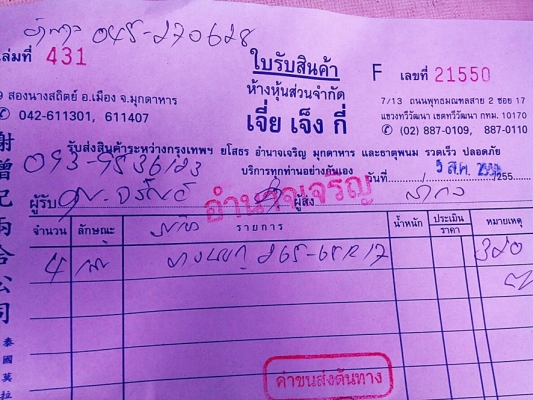 045-270628
เล่มที่ 431
ใบรับสินค้า
F เลขที่ 21550
ห้างหุ้นส่วนจำกัด
เจี่ย เจ็ง กี่
9 สองนางสถิตย์ อ.เมือง จ.มุกดาหาร
✆ 042-611301, 611407
7/13 ถนนพุทธมณฑลสาย 2 ซอย 17
แขวงทวีวัฒนา เขตทวีวัฒนา กทม. 10170
✆ (02) 887-0109, 887-0110
รับส่งสินค้าระหว่างกรุงเทพฯ ยโสธร อำนาจเจริญ มุกดาหาร และธาตุพนม รวดเร็ว ปลอดภัย
093-9536123
บริการทุกท่านอย่างกันเอง
วันที่ 5 ส.ค. /255
ผู้รับ
ผู้ส่ง
อำนาจเจริญ
จำนวน ลักษณะ รายการ น้ำหนัก ประเมินราคา หมายเหตุ
4 265-65R17 320
ค่าขนส่งต้นทาง
謝增記兩合公司
泰國莫拉